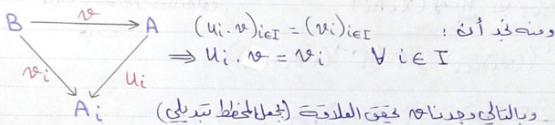 B v A (uᵢ . v)ᵢ∈I = (vᵢ)ᵢ∈I ومنه نجد أن :
vᵢ uᵢ ⇒ uᵢ . v = vᵢ ∀ i ∈ I
Aᵢ
وبالتالي وجدنا v تحقق العلاقة (تجعل المخطط تبديلي)